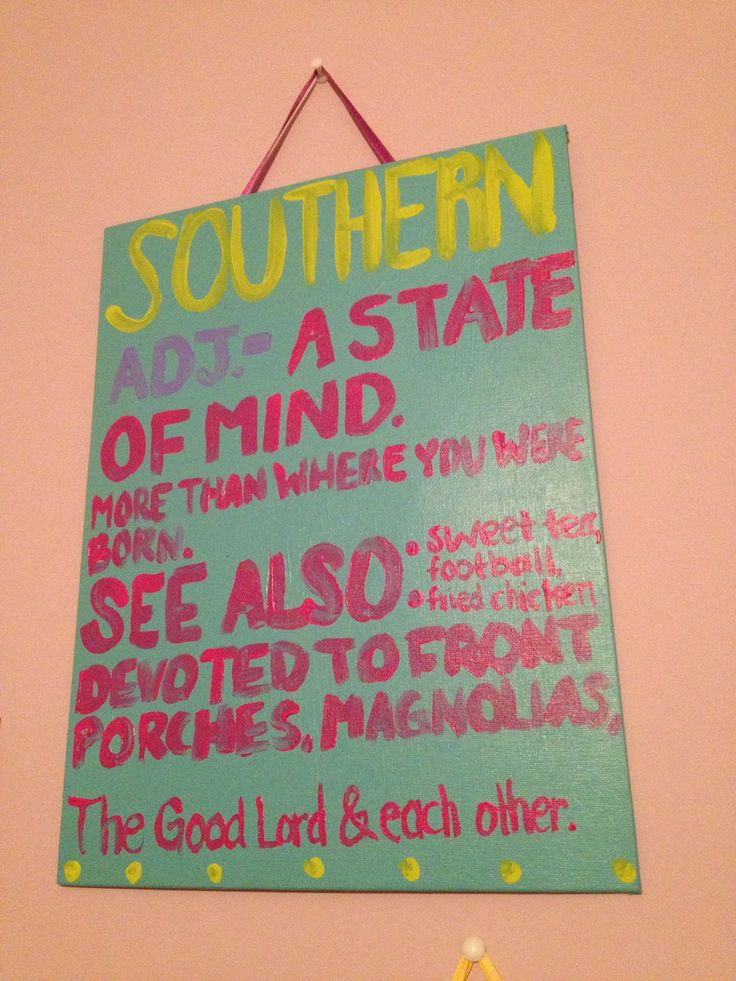 SOUTHERN
ADJ.- A STATE
OF MIND.
MORE THAN WHERE YOU WERE
BORN.
SEE ALSO • sweet tea,
football,
• fried chicken
DEVOTED TO FRONT
PORCHES, MAGNOLIAS,
The Good Lord & each other.